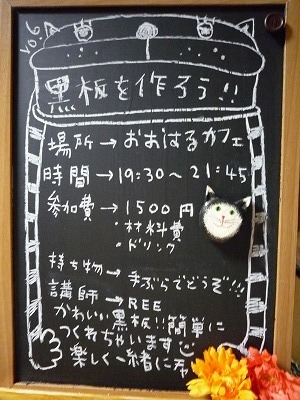 Vol.6
黒板を作ろう!!
場所→おおはるカフェ
時間→19:30~21:45
参加費→1500円
・材料費
・ドリンク
持ち物→手ぶらでどうぞ!!!
講師→REE
かわいい黒板!!簡単に
つくれちゃいます
楽しく一緒に